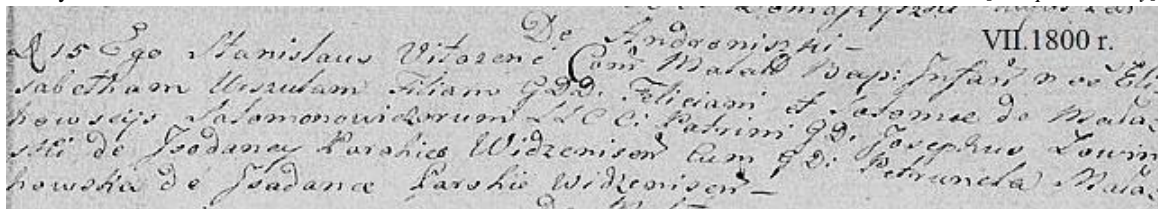 De Androniszki –
VII.1800 r.
D 15 Ego Stanislaus Vitozenc Com̃ Malat Bap: Infañ n oẽ Eli
sabetham Urszulam Filiam GDD: Feliciani et Salomee de Mała
howscijs Salomonowiczorum LLCC: Patrini GD: Josephus Łowin
ski de Jsodancy Parohies Widzenisen̄ Cum GD: Petrunela Mała
howska de Jsadance Parohie Widzenisen̄ –